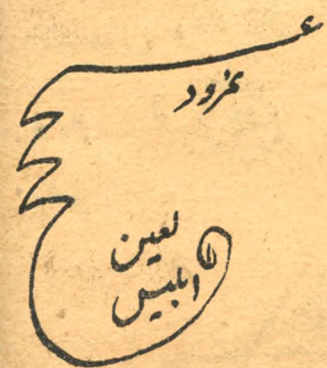 نمرود
لعین
ابلیس